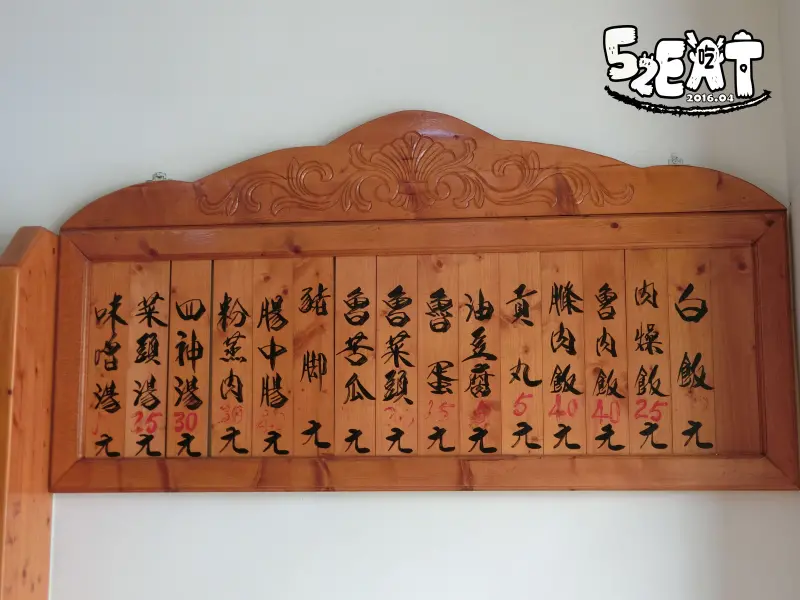 52EAT
吃
2016.04
白飯 元
肉燥飯 25元
魯肉飯 40元
滕肉飯 40元
貢丸 5元
油豆腐 元
魯蛋 15元
魯菜頭 元
魯苦瓜 元
豬脚 元
腸中腸 元
粉蒸肉 30元
四神湯 30元
菜頭湯 25元
味噌湯 元